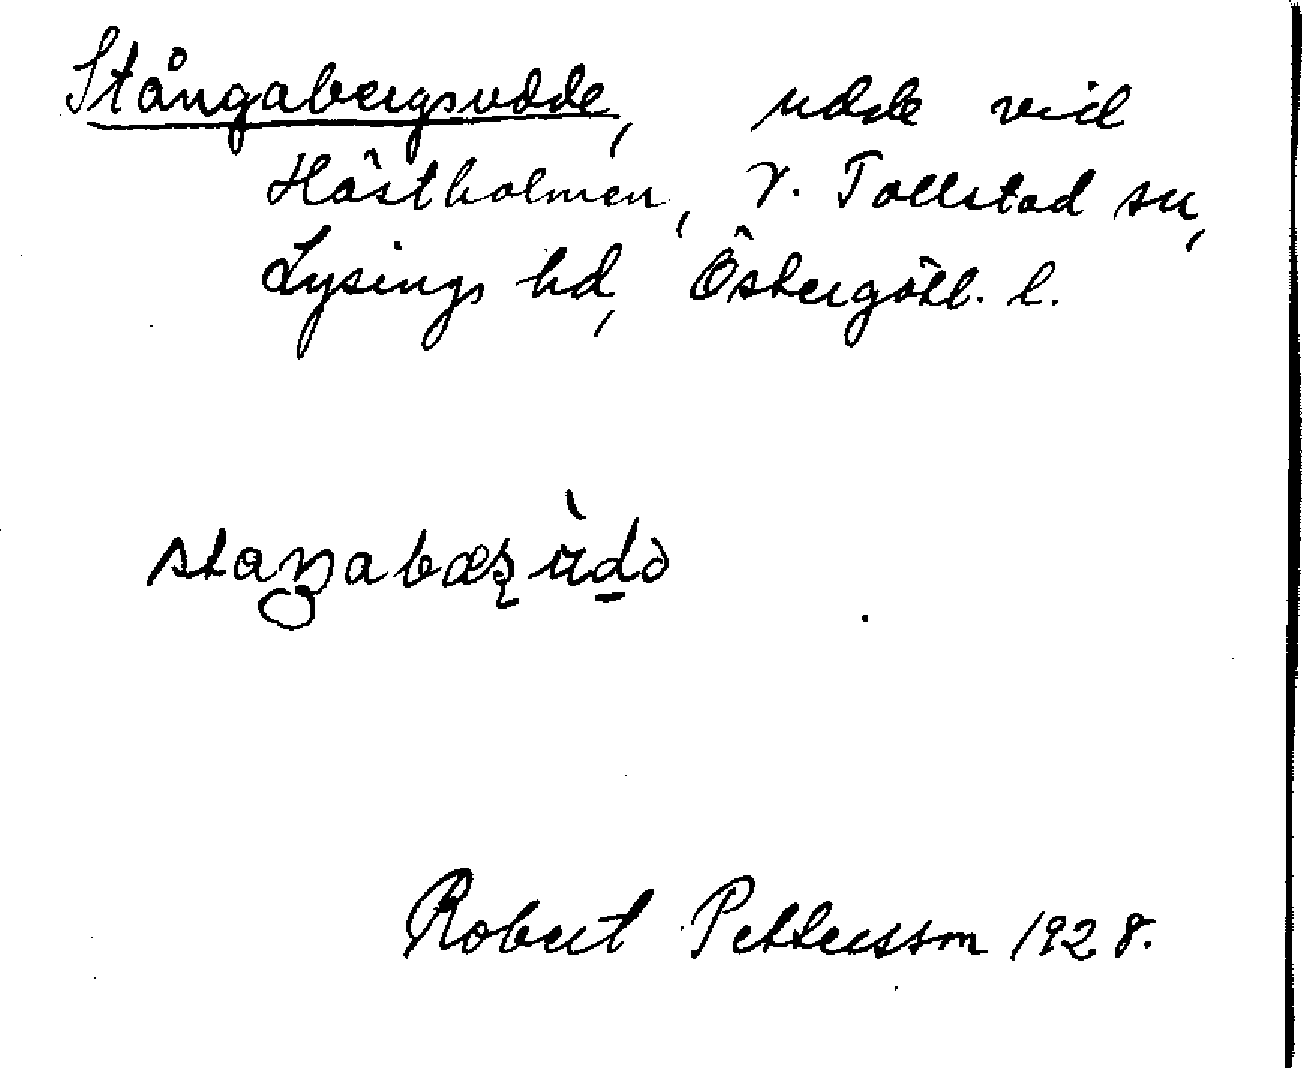 Stångabergsudde, udde vid
Hästholmen, V. Tollstad sn,
Lysings hd, Östergötl. l.
staŋabæʂ ùdə
Robert Pettersson 1928.